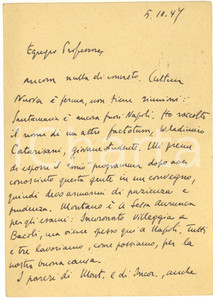 5.10.47
Egregio Professore,
ancora nulla di concreto. Cultura
Nuova è ferma, non tiene riunioni:
Santamaria è ancora fuori Napoli. Ho raccolto
il nome di un altro factotum, Wladimiro
Catarisani, giovane studente. Mi preme
di esporre il mio programma dopo aver
conosciuto questa gente in un convegno,
quindi devo armarmi di pazienza e
prudenza. Montano è a Sessa Aurunca
per gli esami: Incoronato villeggia a
Bacoli, ma viene spesso qui a Napoli. Tutti
e tre lavoriamo, come possiamo, per la
nostra buona causa.
I pareri di Mont. e di Incor., anche